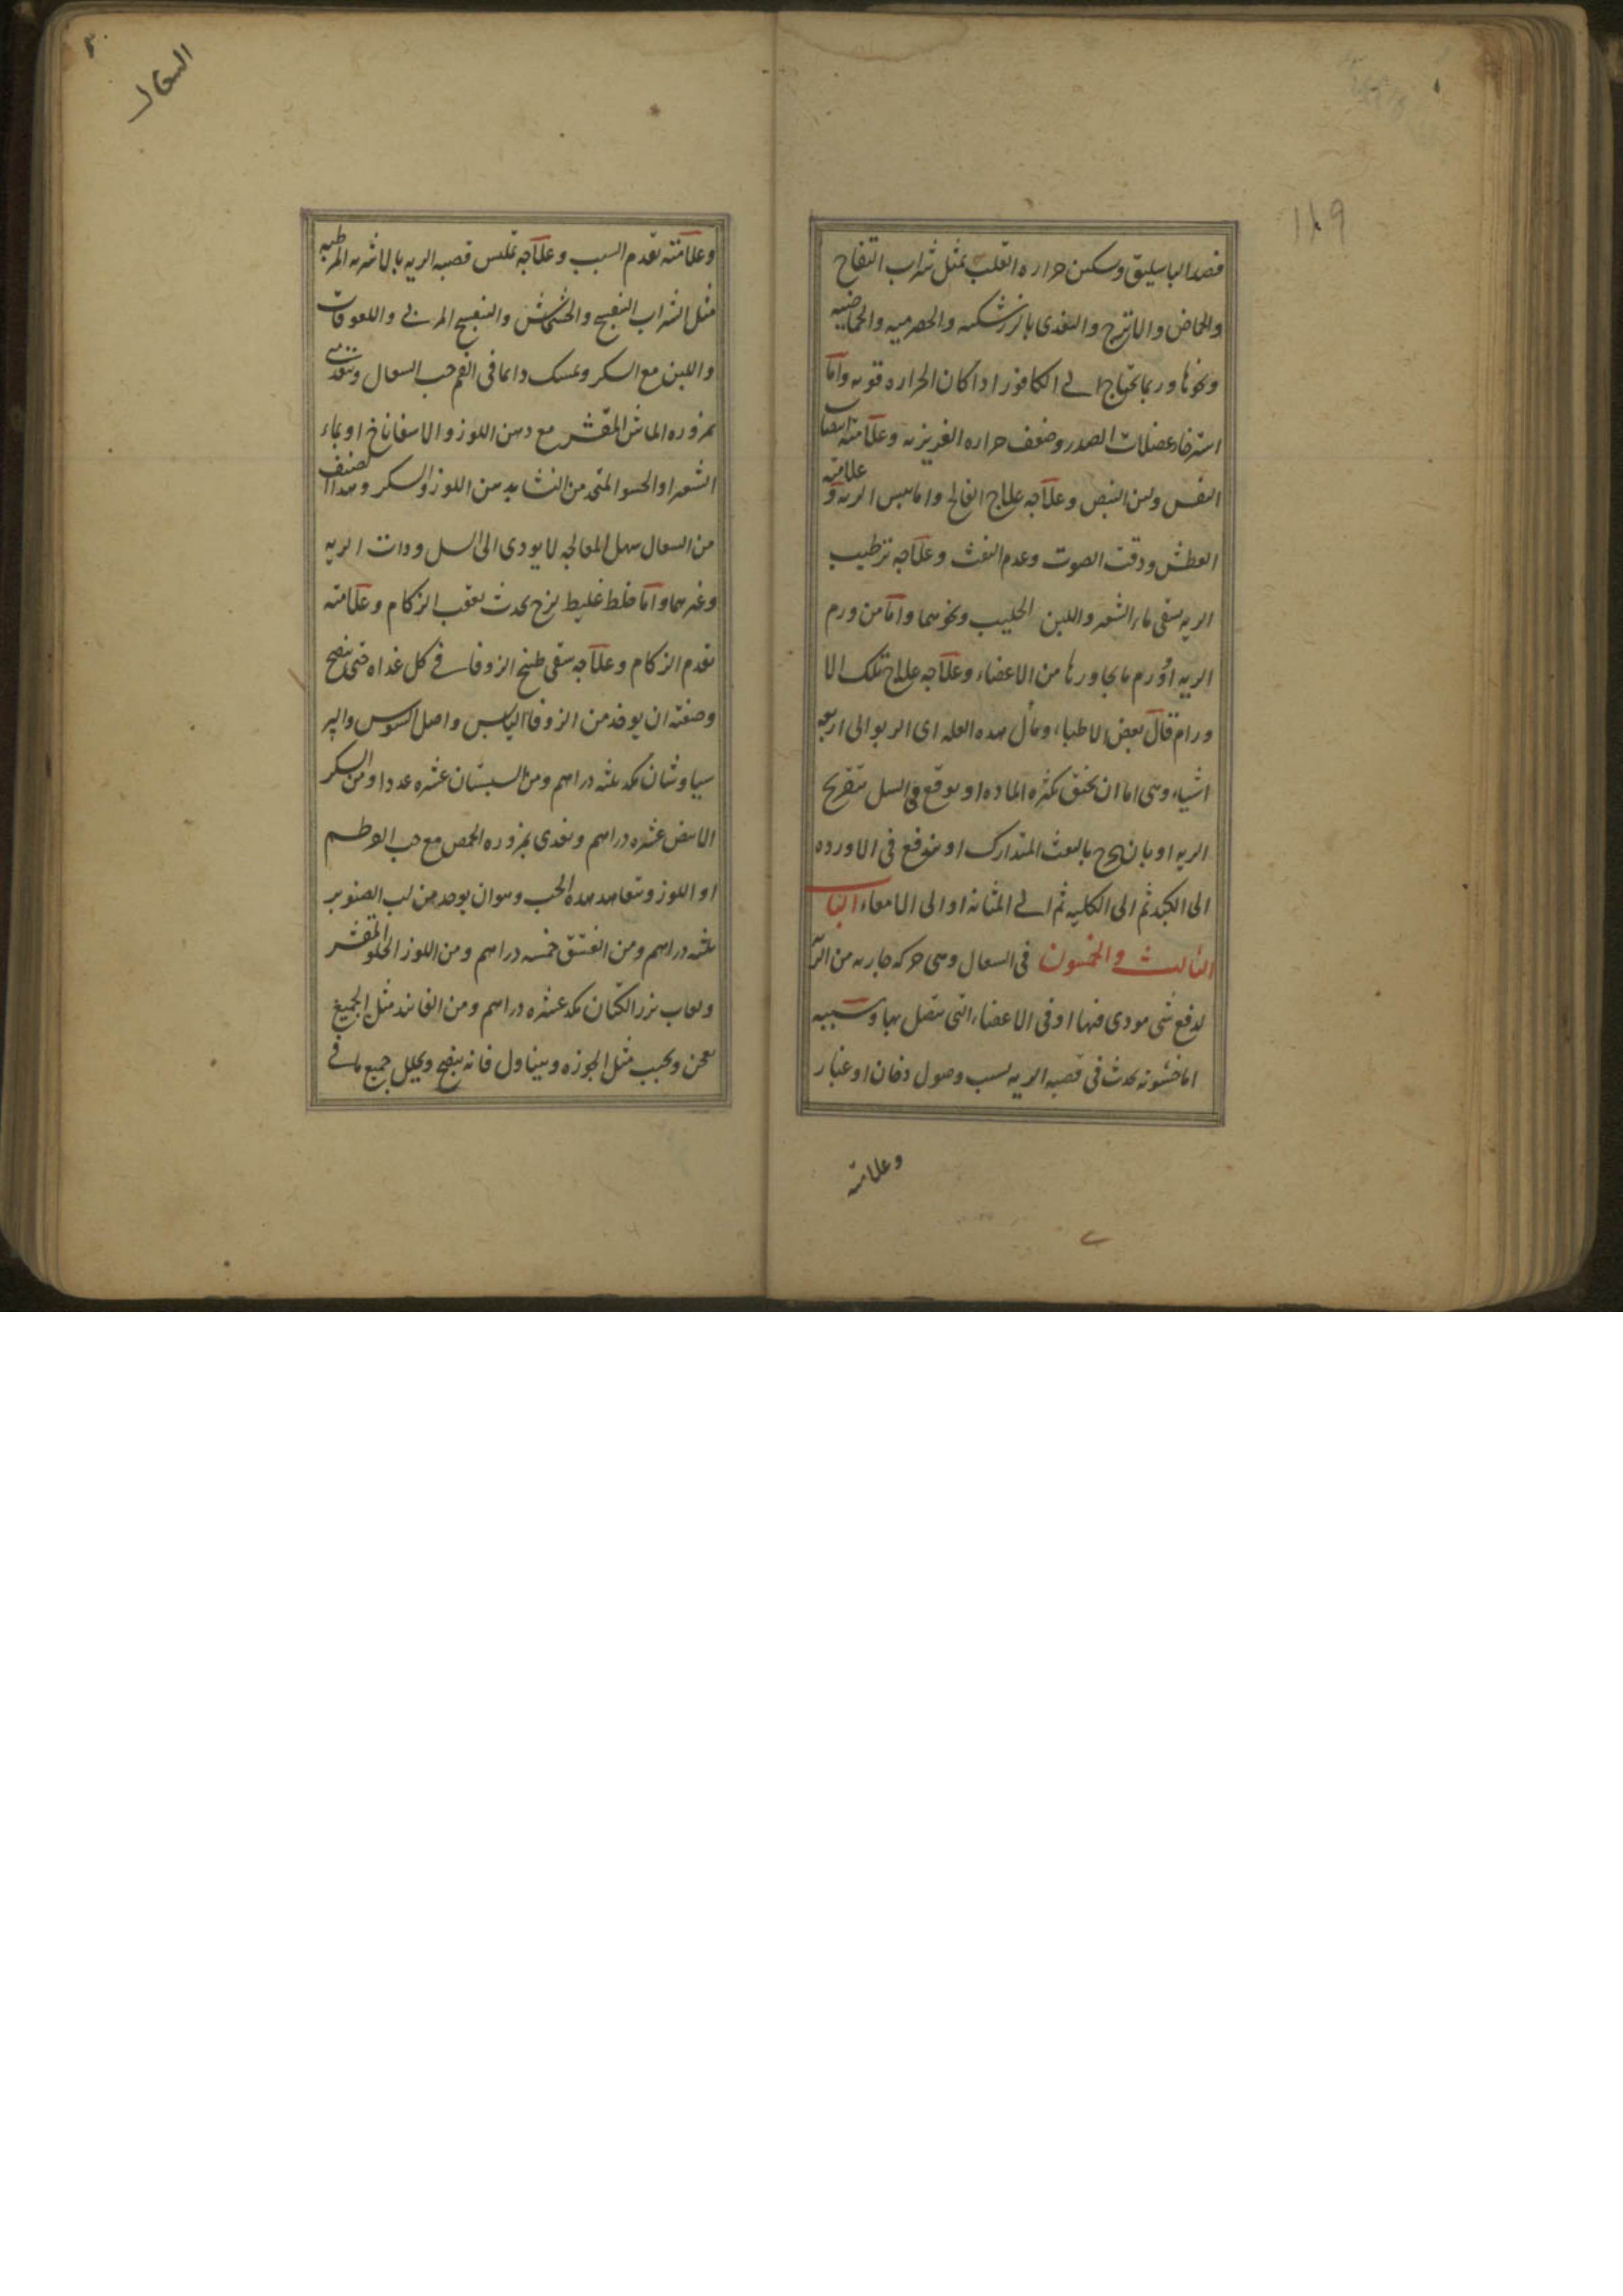 ١٨٩
فصد الباسليق وتسكين حراره القلب بمثل شراب التفاح
والحماض والاترج والتغدى بالزرشكيه والحصرميه والحماضيه
ونحوها وربما يحتاج الى الكافور اذا كان الحراره قويه واما
استرخاء عضلات الصدر وضعف حراره الغريزيه وعلامته انتصاب
النفس ولين النبض وعلاجه علاج الفالج واما يبس الريه و علامته
العطش ودقت الصوت وعدم النفث وعلاجه ترطيب
الريه بسقى ماء الشعير واللبن الحليب ونحوهما واما من ورم
الريه او ورم ما يجاورها من الاعضاء وعلاجه علاج تلك الا
ورام قال بعض الاطباء ومآل هذه العله اى الربو الى اربعه
اشياء وهى اما ان يخنق بكثره الماده او يوقع فى السل بتقريح
الريه او بان بالنفث المتدارك او يندفع فى الاورده
الى الكبد ثم الى الكليه ثم الى المثانه او الى الامعاء الباب
الثالث والخمسون فى السعال وهى حركه جاريه من الريه
لدفع شى موذى فيها او فى الاعضاء التى يتصل بها وسببه
اما خشونه يحدث فى قصبه الريه بسبب وصول دخان او غبار
وعلامته
السعال
وعلامته تقدم السبب وعلاجه تمليس قصبه الريه بالاشربه المرطبه
مثل شراب البنفسج والخشخاش والبنفسج المربى واللعوقات
واللبن مع السكر ويمسك دائما فى الفم حب السعال ويتغدى
بمزوره الماش المقشر مع دهن اللوز والاسفاناخ او بماء
الشعير او الحسو المتخذ من النشا بدهن اللوز والسكر وهذا الصنف
من السعال سهل المعالجه لا يودى الى السل وذات الريه
وغيرهما واما خلط غليظ لزج يحدث بعقب الزكام وعلامته
تقدم الزكام وعلاجه سقى طبيخ الزوفا فى كل غداه حتى ينضج
وصفته ان يوخذ من الزوفا اليابس واصل السوس والبر
سياوشان مكد ثلثه دراهم ومن السبستان عشره عددا ومن السكر
الابيض عشره دراهم ويغدى بمزوره الحمص مع حب القرطم
او اللوز ويتعاهد هذه الحب وهو ان يوخذ من لب الصنوبر
ثلثه دراهم ومن الفستق خمسه دراهم ومن اللوز الحلو المقشر
ولعاب بزر الكتان مكد عشره دراهم ومن الفانيذ مثل الجميع
يعجن ويحبب مثل الجوزه ويتناول فانه ينضج ويحلل جميع ما فى